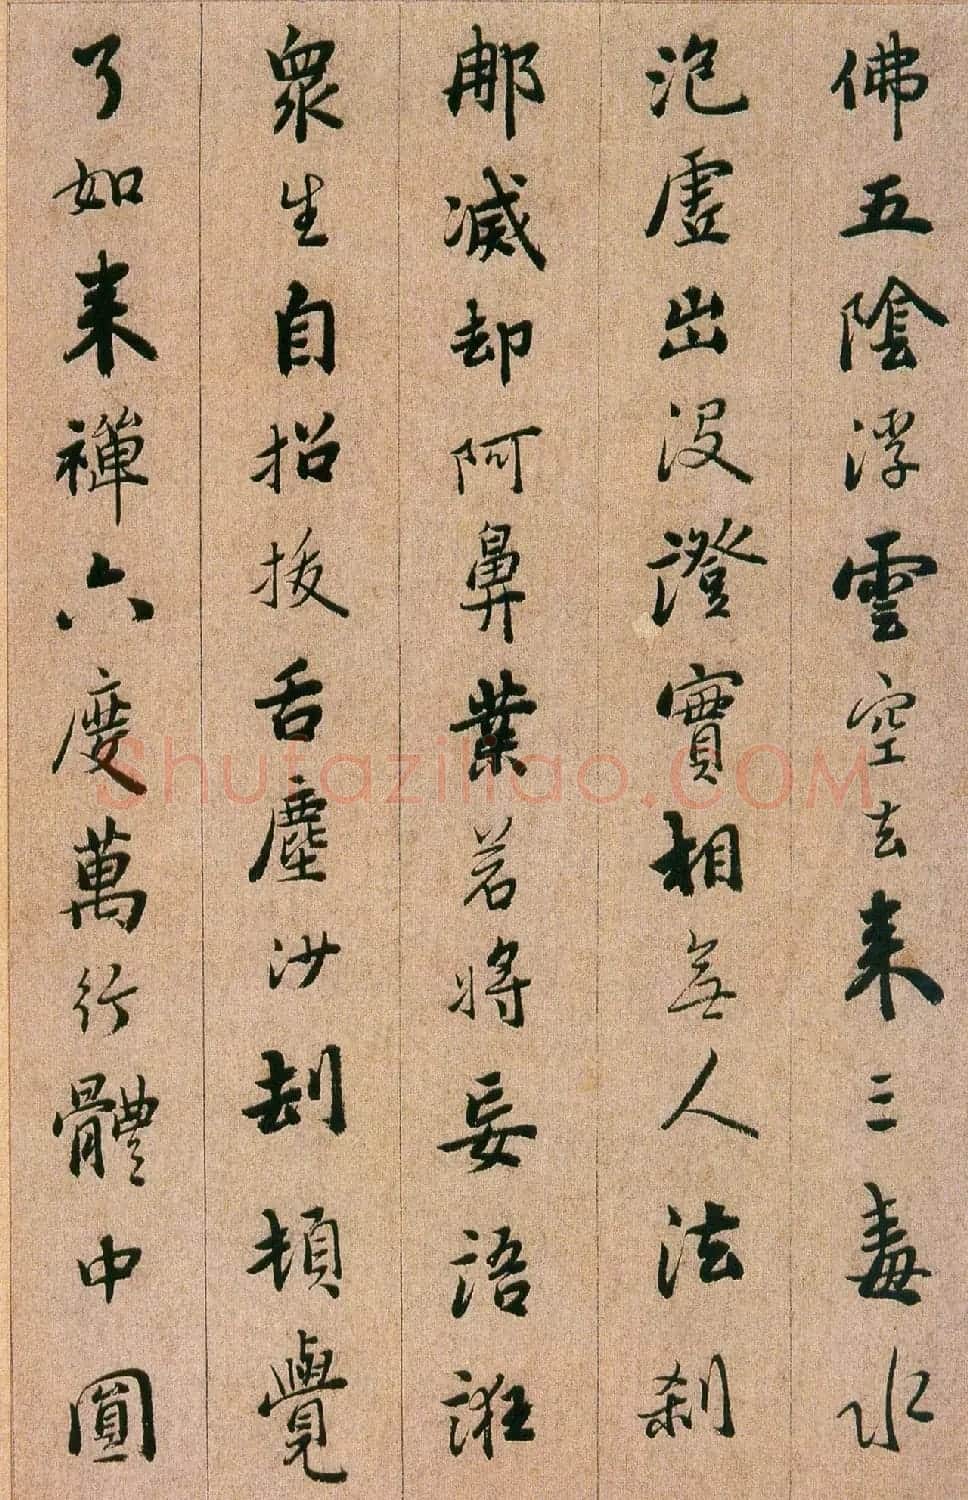 佛五陰浮雲空去来三毒水
泡虚出没澄實相無人法刹
那滅却阿鼻業若將妄語誑
衆生自招拔舌塵沙刼頓覺
了如来禪六度萬行體中圓
Shufaziliao.COM